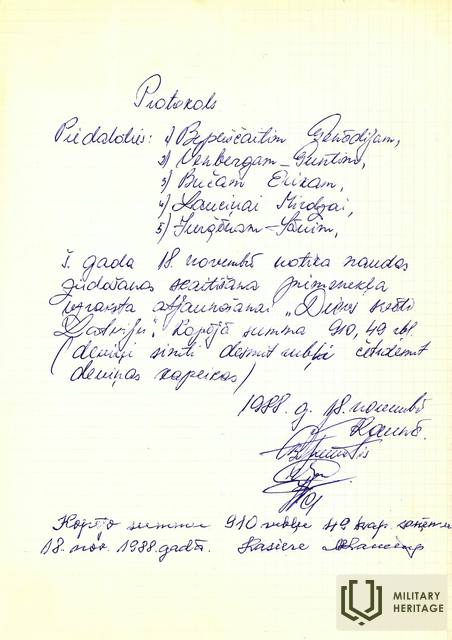 Protokols
Piedaloties: 1) Bepeščaitim Genādijam,
2) Venbergam Guntim,
3) Bučam Ērikam,
4) Lauciņai Mirdzai,
5) Jurģēnam Jānim,
Š. gada 18. novembrī notika naudas
ziedošanas skaitīšana pieminekļa
uzraksta atjaunošanai „Dievs svētī
Latviju". Kopējā summa 910,49 rbl.
(deviņi simti desmit rubļi četrdesmit
deviņas kapeikas)
1988. g. 18. novembrī
Raunā.
Kopējo summu 910 rubļi 49 kap. saņēmu
18. nov. 1988. gadā. Kasiere
MILITARY
HERITAGE